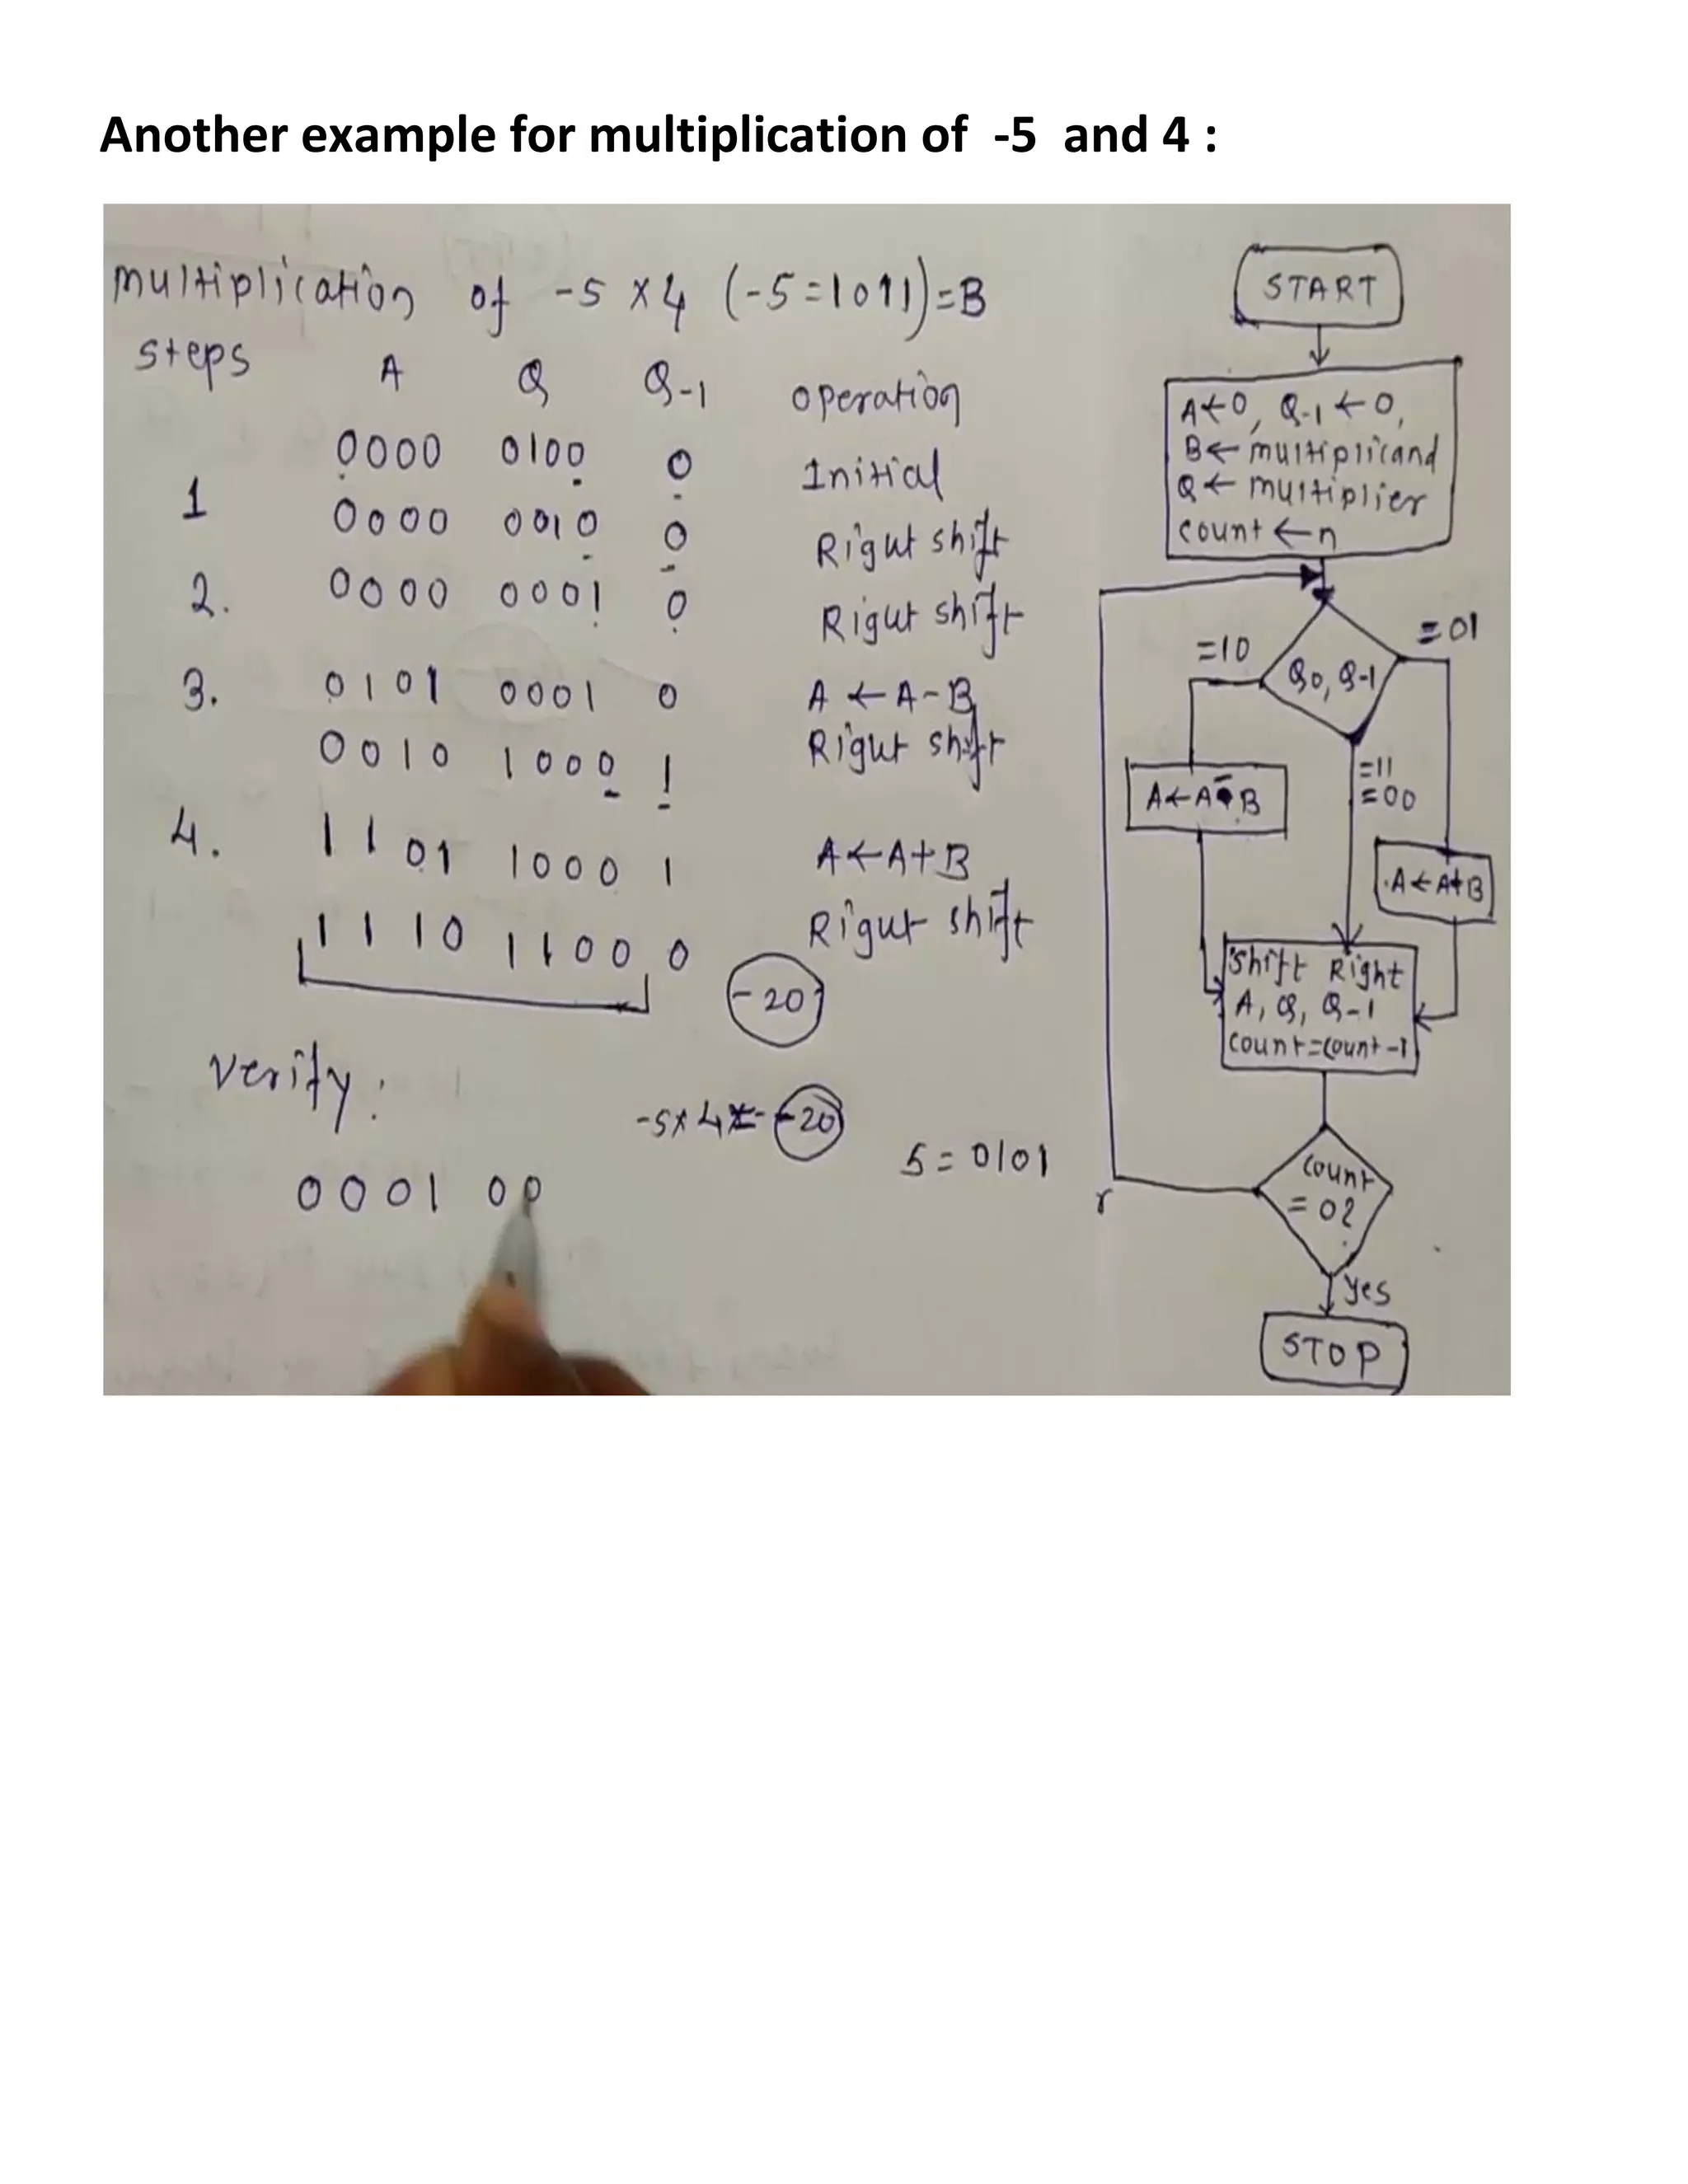 Another example for multiplication of -5 and 4 :
multiplication of -5 x 4 (-5=1011)=B
steps A Q Q-1 operation
0000 0100 0 Initial
1 0000 0010 0 Right shift
2. 0000 0001 0 Right shift
3. 0101 0001 0 A ← A-B
0010 1000 1 Right shift
4. 1101 1000 1 A←A+B
1110 1100 0 Right shift
-20
verify:
-5x4=-20
5=0101
0001 00
START
A←0, Q-1←0,
B← multiplicand
Q← multiplier
count ←n
=10
Q0, Q-1
=01
A←A-B
=11
=00
A←A+B
Shift Right
A, Q, Q-1
count=count-1
count
=0?
yes
STOP